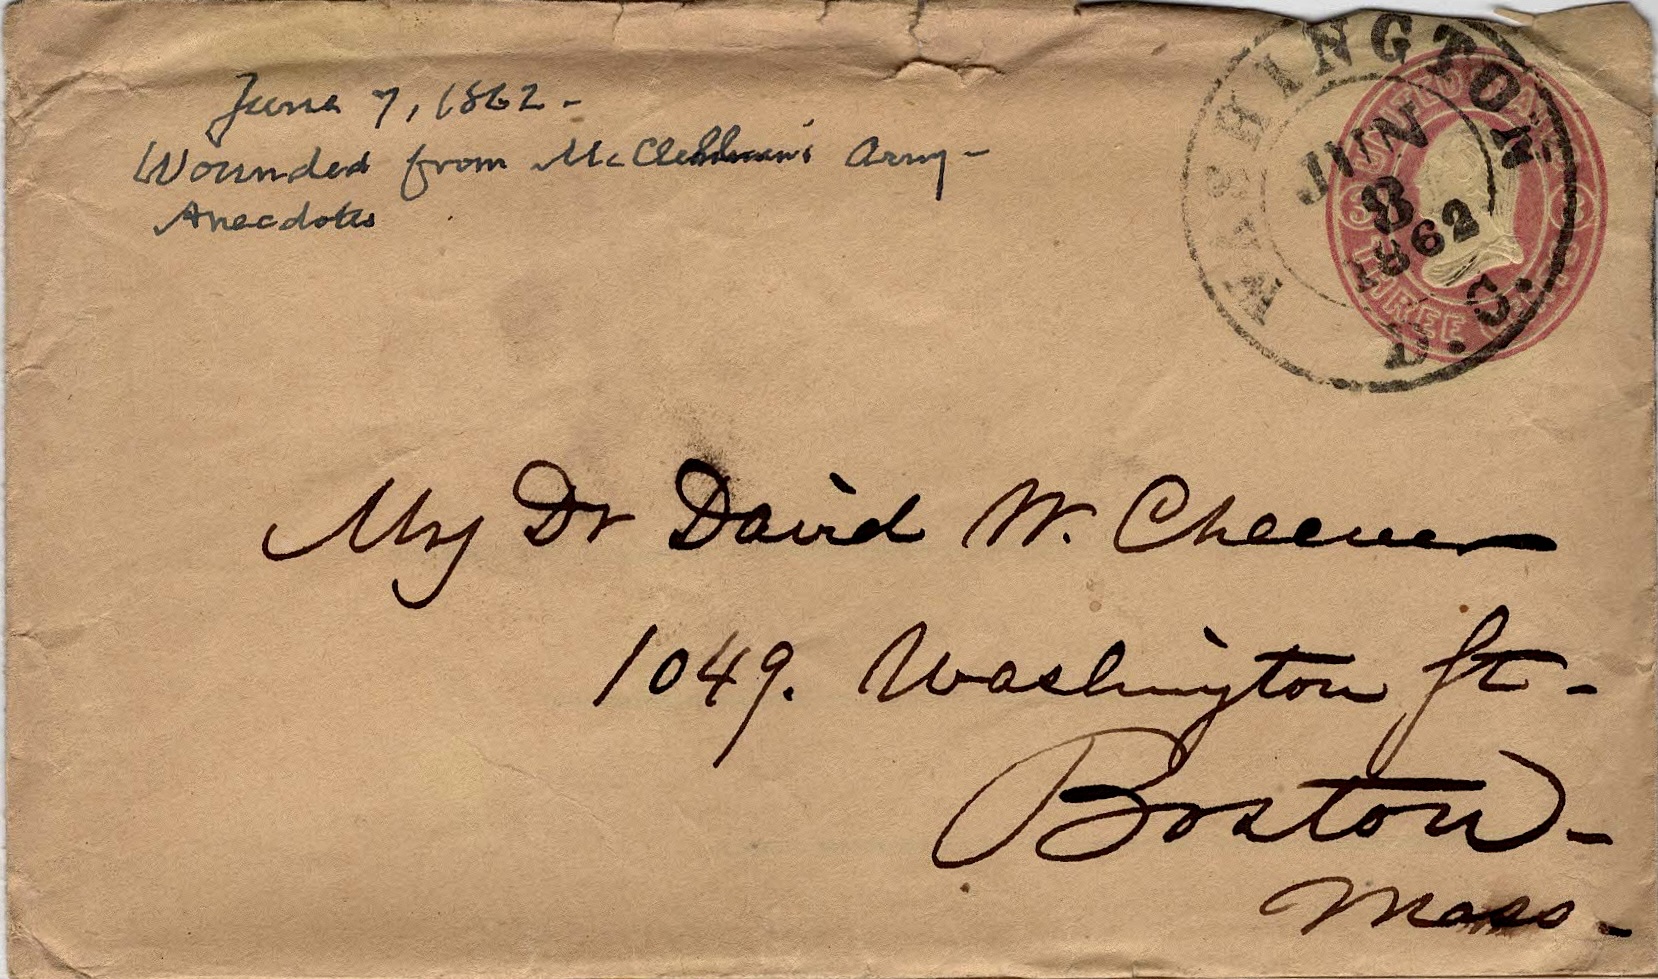 June 7, 1862 -
Wounded from McClellan's Army -
Anecdotes
WASHINGTON
D.C.
JUN
8
1862
THREE
Dr David W. Cheever
1049. Washington St -
Boston -
Mass -